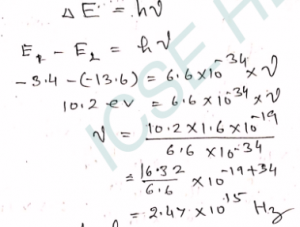 ΔE = hν
E₂ - E₁ = hν
-3.4 - (-13.6) = 6.6×10⁻³⁴ × ν
10.2 ev = 6.6×10⁻³⁴ × ν
ν = 10.2×1.6×10⁻¹⁹ / 6.6×10⁻³⁴
= 16.32 / 6.6 × 10⁻¹⁹⁺³⁴
= 2.47 × 10¹⁵ Hz
ICSE